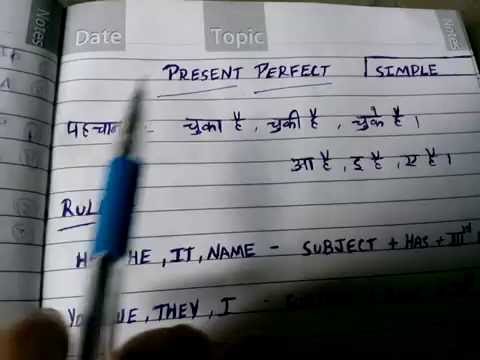 Notes Date Topic Notes
PRESENT PERFECT SIMPLE
पहचान :- चुका है, चुकी है, चुके है।
आ है, इ है, ए है।
RUL
HE, IT, NAME - SUBJECT + HAS + III
THEY, I -